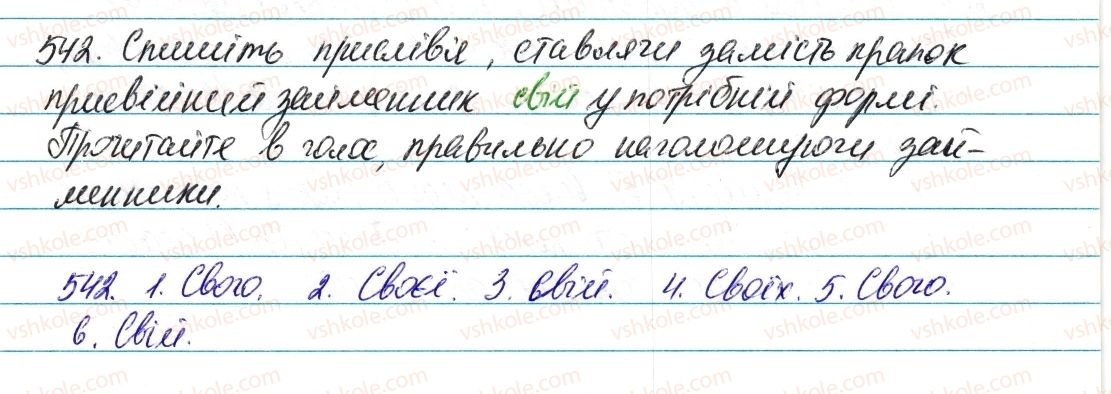 542. Спишіть прислівя, ставлячи замість крапок
присвійний займенник свій у потрібній формі.
Прочитайте в голос, правильно наголошуючи зай-
менники.
542. 1. Свого. 2. Своєї. 3. Свій. 4. Своїх. 5. Свого.
6. Свій.